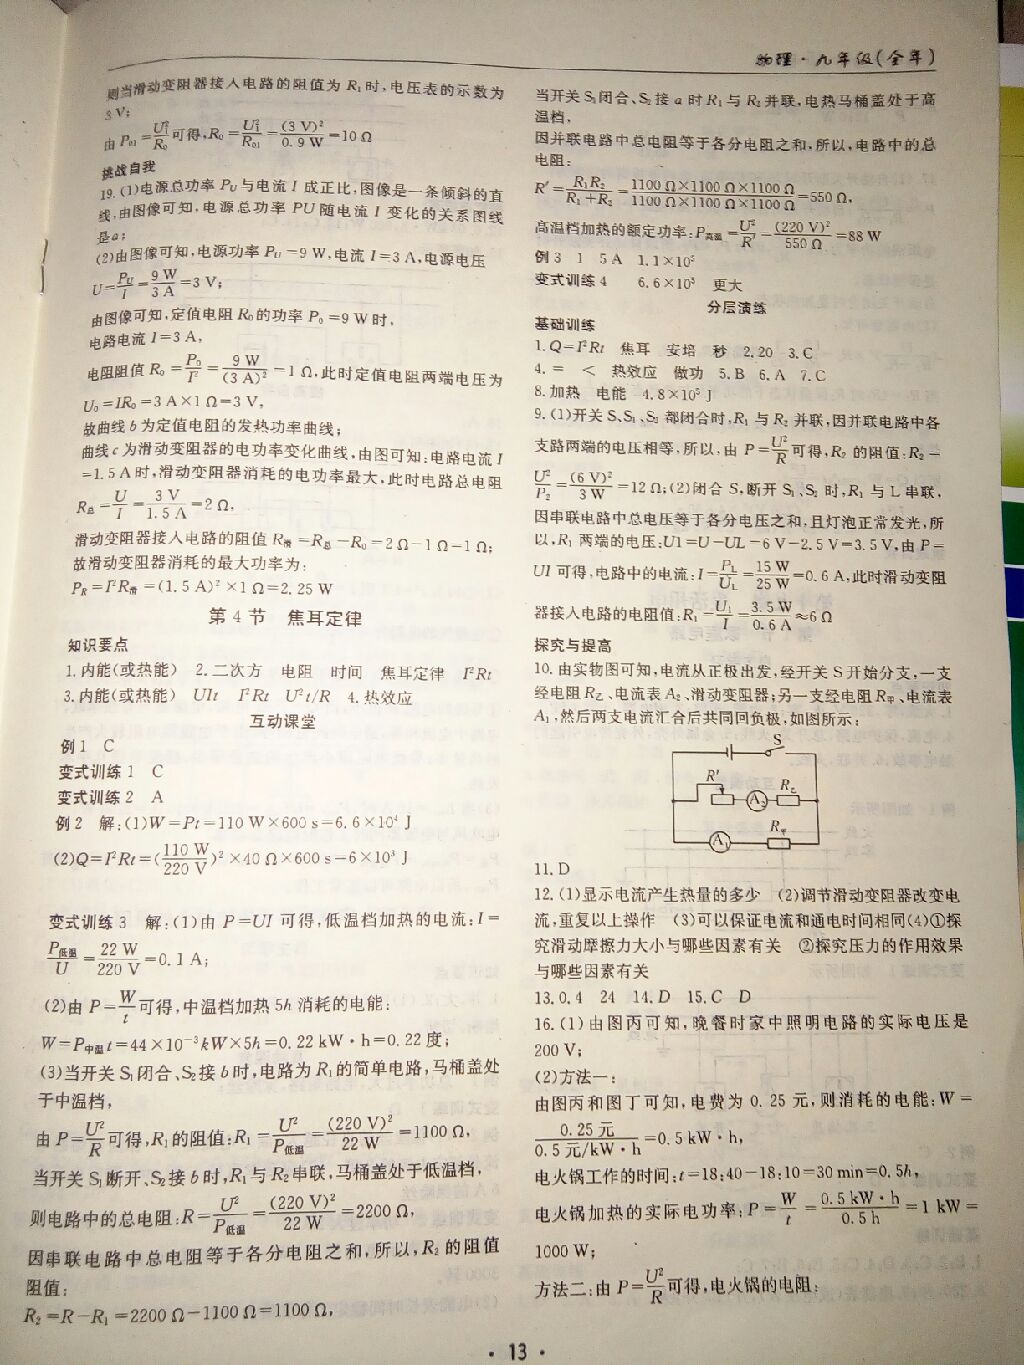 物理·九年级(全年)
则当滑动变阻器接入电路的阻值为 R₁ 时,电压表的示数为
3 V;
由 P₀₁=U₁²/R₀ 可得,R₀=U₁²/P₀₁=(3 V)²/0.9 W=10 Ω
挑战自我
19.(1)电源总功率 P_U 与电流 I 成正比,图像是一条倾斜的直
线,由图像可知,电源总功率 PU 随电流 I 变化的关系图线
是 a;
(2)由图像可知,电源功率 P_U=9 W,电流 I=3 A,电源电压
U=P_U/I=9 W/3 A=3 V;
由图像可知,定值电阻 R₀ 的功率 P₀=9 W 时,
电路电流 I=3 A,
电阻阻值 R₀=P₀/I²=9 W/(3 A)²=1 Ω,此时定值电阻两端电压为
U₀=IR₀=3 A×1 Ω=3 V,
故曲线 b 为定值电阻的发热功率曲线;
曲线 c 为滑动变阻器的电功率变化曲线,由图可知:电路电流 I
=1.5 A 时,滑动变阻器消耗的电功率最大,此时电路总电阻
R总=U/I=3 V/1.5 A=2 Ω,
滑动变阻器接入电路的阻值 R滑=R总-R₀=2 Ω-1 Ω=1 Ω;
故滑动变阻器消耗的最大功率为:
P_R=I²R滑=(1.5 A)²×1 Ω=2.25 W
第 4 节 焦耳定律
知识要点
1.内能(或热能) 2.二次方 电阻 时间 焦耳定律 I²Rt
3.内能(或热能) UIt I²Rt U²t/R 4.热效应
互动课堂
例 1 C
变式训练 1 C
变式训练 2 A
例 2 解:(1)W=Pt=110 W×600 s=6.6×10⁴ J
(2)Q=I²Rt=(110 W/220 V)²×40 Ω×600 s=6×10³ J
变式训练 3 解:(1)由 P=UI 可得,低温档加热的电流:I=
P低温/U=22 W/220 V=0.1 A;
(2)由 P=W/t 可得,中温档加热 5h 消耗的电能:
W=P中温t=44×10⁻³kW×5h=0.22 kW·h=0.22 度;
(3)当开关 S₁闭合、S₂接 b 时,电路为 R₁的简单电路,马桶盖处
于中温档,
由 P=U²/R 可得,R₁的阻值:R₁=U²/P低温=(220 V)²/22 W=1100 Ω,
当开关 S₁断开、S₂接 b 时,R₁与 R₂串联,马桶盖处于低温档,
则电路中的总电阻:R=U²/P低温=(220 V)²/22 W=2200 Ω,
因串联电路中总电阻等于各分电阻之和,所以,R₂ 的阻值
阻值:
R₂=R-R₁=2200 Ω-1100 Ω=1100 Ω,
当开关 S₁闭合、S₂接 a 时 R₁与 R₂并联,电热马桶盖处于高
温档,
因并联电路中总电阻等于各分电阻之和,所以,电路中的总
电阻:
R′=R₁R₂/R₁+R₂=1100 Ω×1100 Ω×1100 Ω/1100 Ω×1100 Ω×1100 Ω=550 Ω,
高温档加热的额定功率:P高温=U²/R′=(220 V)²/550 Ω=88 W
例 3 1 5 A 1.1×10⁵
变式训练 4 6.6×10⁵ 更大
分层演练
基础训练
1.Q=I²Rt 焦耳 安培 秒 2.20 3.C
4.= < 热效应 做功 5.B 6.A 7.C
8.加热 电能 4.8×10⁵ J
9.(1)开关 S、S₁、S₂ 都闭合时,R₁ 与 R₂ 并联,因并联电路中各
支路两端的电压相等,所以,由 P=U²/R 可得,R₂ 的阻值:R₂=
U²/P₂=(6 V)²/3 W=12 Ω;(2)闭合 S,断开 S₁、S₂ 时,R₁ 与 L 串联,
因串联电路中总电压等于各分电压之和,且灯泡正常发光,所
以,R₁ 两端的电压:U1=U-UL=6 V-2.5 V=3.5 V,由 P=
UI 可得,电路中的电流:I=P_L/U_L=15 W/25 W=0.6 A,此时滑动变阻
器接入电路的电阻值:R₁=U₁/I=3.5 W/0.6 A≈6 Ω
探究与提高
10.由实物图可知,电流从正极出发,经开关 S 开始分支,一支
经电阻 R乙、电流表 A₂、滑动变阻器;另一支经电阻 R甲、电流表
A₁,然后两支电流汇合后共同回负极,如图所示:
S
R′ A₂ R乙
A₁ R甲
11.D
12.(1)显示电流产生热量的多少 (2)调节滑动变阻器改变电
流,重复以上操作 (3)可以保证电流和通电时间相同(4)①探
究滑动摩擦力大小与哪些因素有关 ②探究压力的作用效果
与哪些因素有关
13.0.4 24 14.D 15.C D
16.(1)由图丙可知,晚餐时家中照明电路的实际电压是
200 V;
(2)方法一:
由图丙和图丁可知,电费为 0.25 元,则消耗的电能:W=
0.25 元/0.5 元/kW·h=0.5 kW·h,
电火锅工作的时间:t=18:40-18:10=30 min=0.5h,
电火锅加热的实际电功率:P=W/t=0.5 kW·h/0.5 h=1 kW=
1000 W;
方法二:由 P=U²/R 可得,电火锅的电阻:
· 13 ·